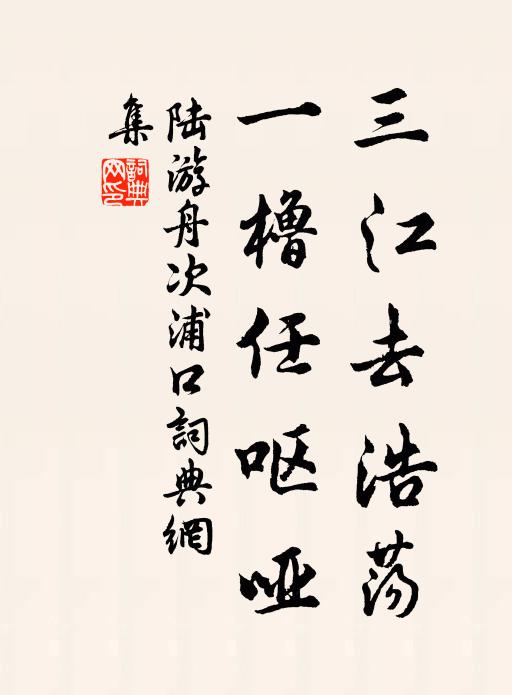 三江去浩荡
一橹任呕哑
陆游舟次浦口詞典網
集
詞典網印